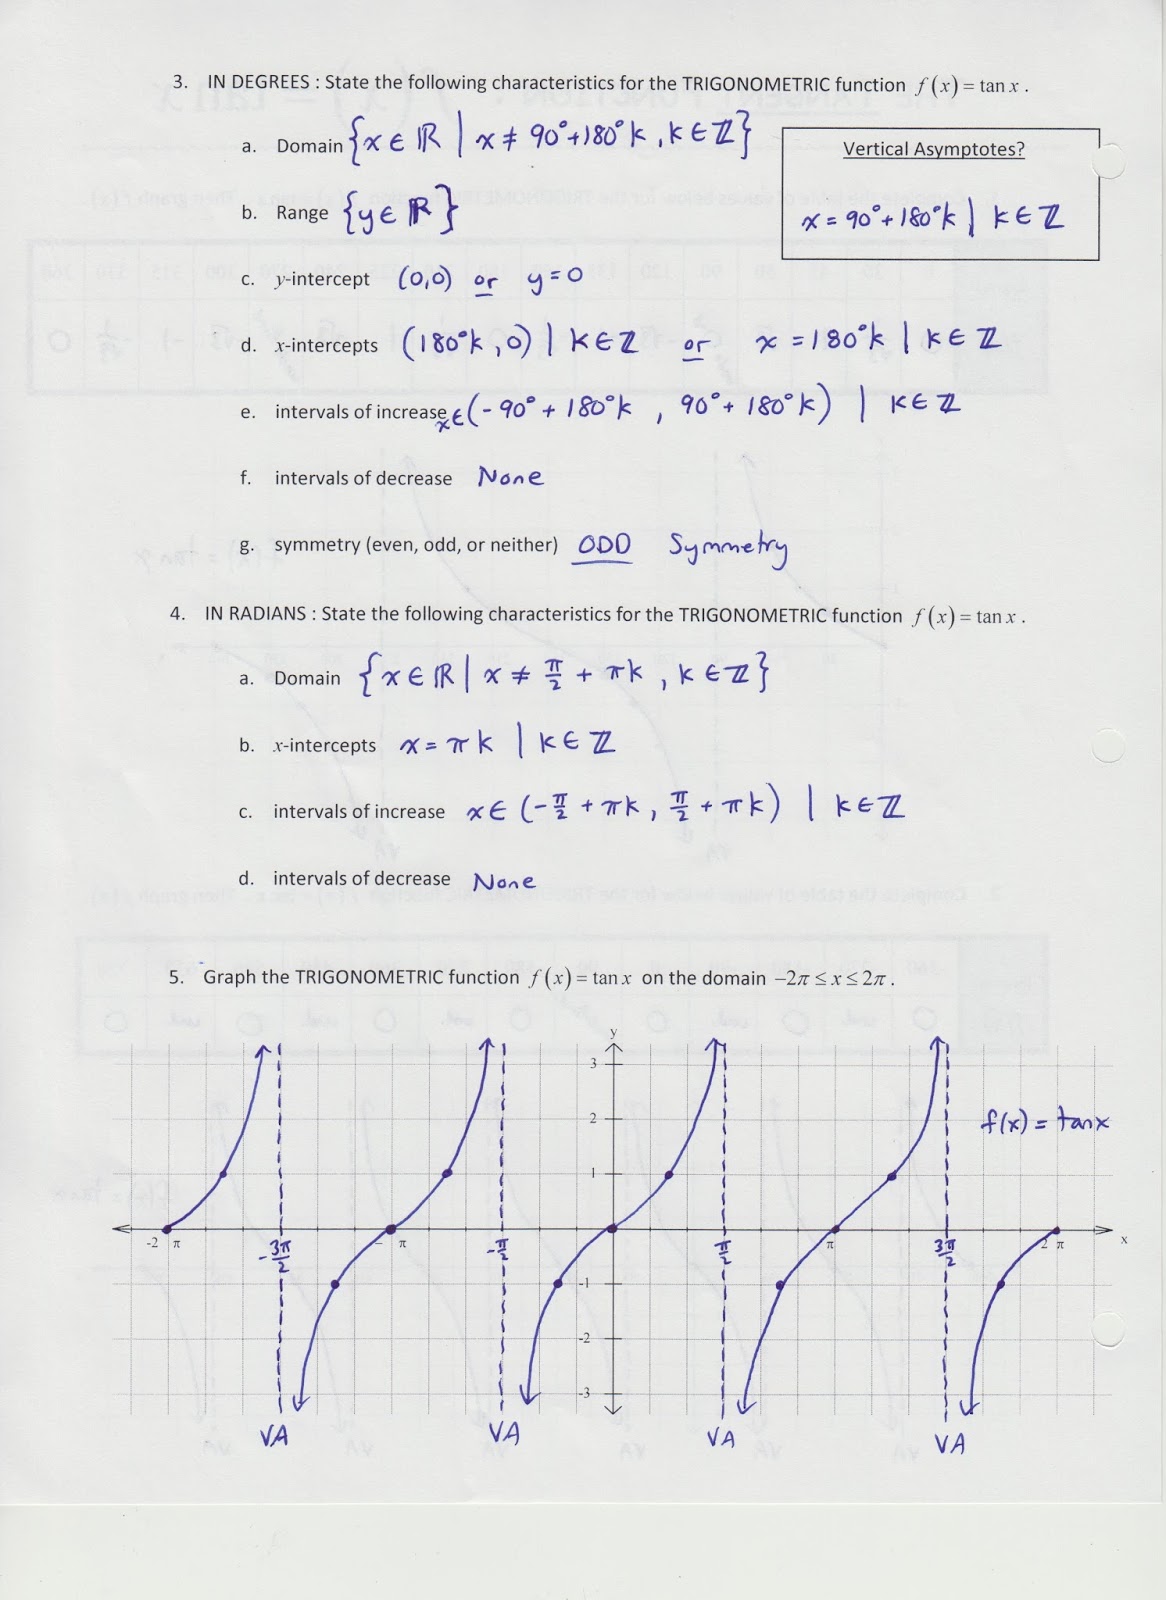 3. IN DEGREES : State the following characteristics for the TRIGONOMETRIC function f(x) = tan x .
a. Domain {x ∈ ℝ | x ≠ 90° + 180°k , k ∈ ℤ}
Vertical Asymptotes?
x = 90° + 180°k | k ∈ ℤ
b. Range {y ∈ ℝ}
c. y-intercept (0,0) or y = 0
d. x-intercepts (180°k , 0) | k ∈ ℤ or x = 180°k | k ∈ ℤ
e. intervals of increase x ∈ (-90° + 180°k , 90° + 180°k) | k ∈ ℤ
f. intervals of decrease None
g. symmetry (even, odd, or neither) ODD Symmetry
4. IN RADIANS : State the following characteristics for the TRIGONOMETRIC function f(x) = tan x .
a. Domain {x ∈ ℝ | x ≠ π/2 + πk , k ∈ ℤ}
b. x-intercepts x = πk | k ∈ ℤ
c. intervals of increase x ∈ (-π/2 + πk , π/2 + πk) | k ∈ ℤ
d. intervals of decrease None
5. Graph the TRIGONOMETRIC function f(x) = tan x on the domain −2π ≤ x ≤ 2π .
y
3
2
f(x) = tan x
1
-2 π -3π/2 − π -π/2 π/2 π 3π/2 2 π x
-1
-2
-3
VA VA VA VA